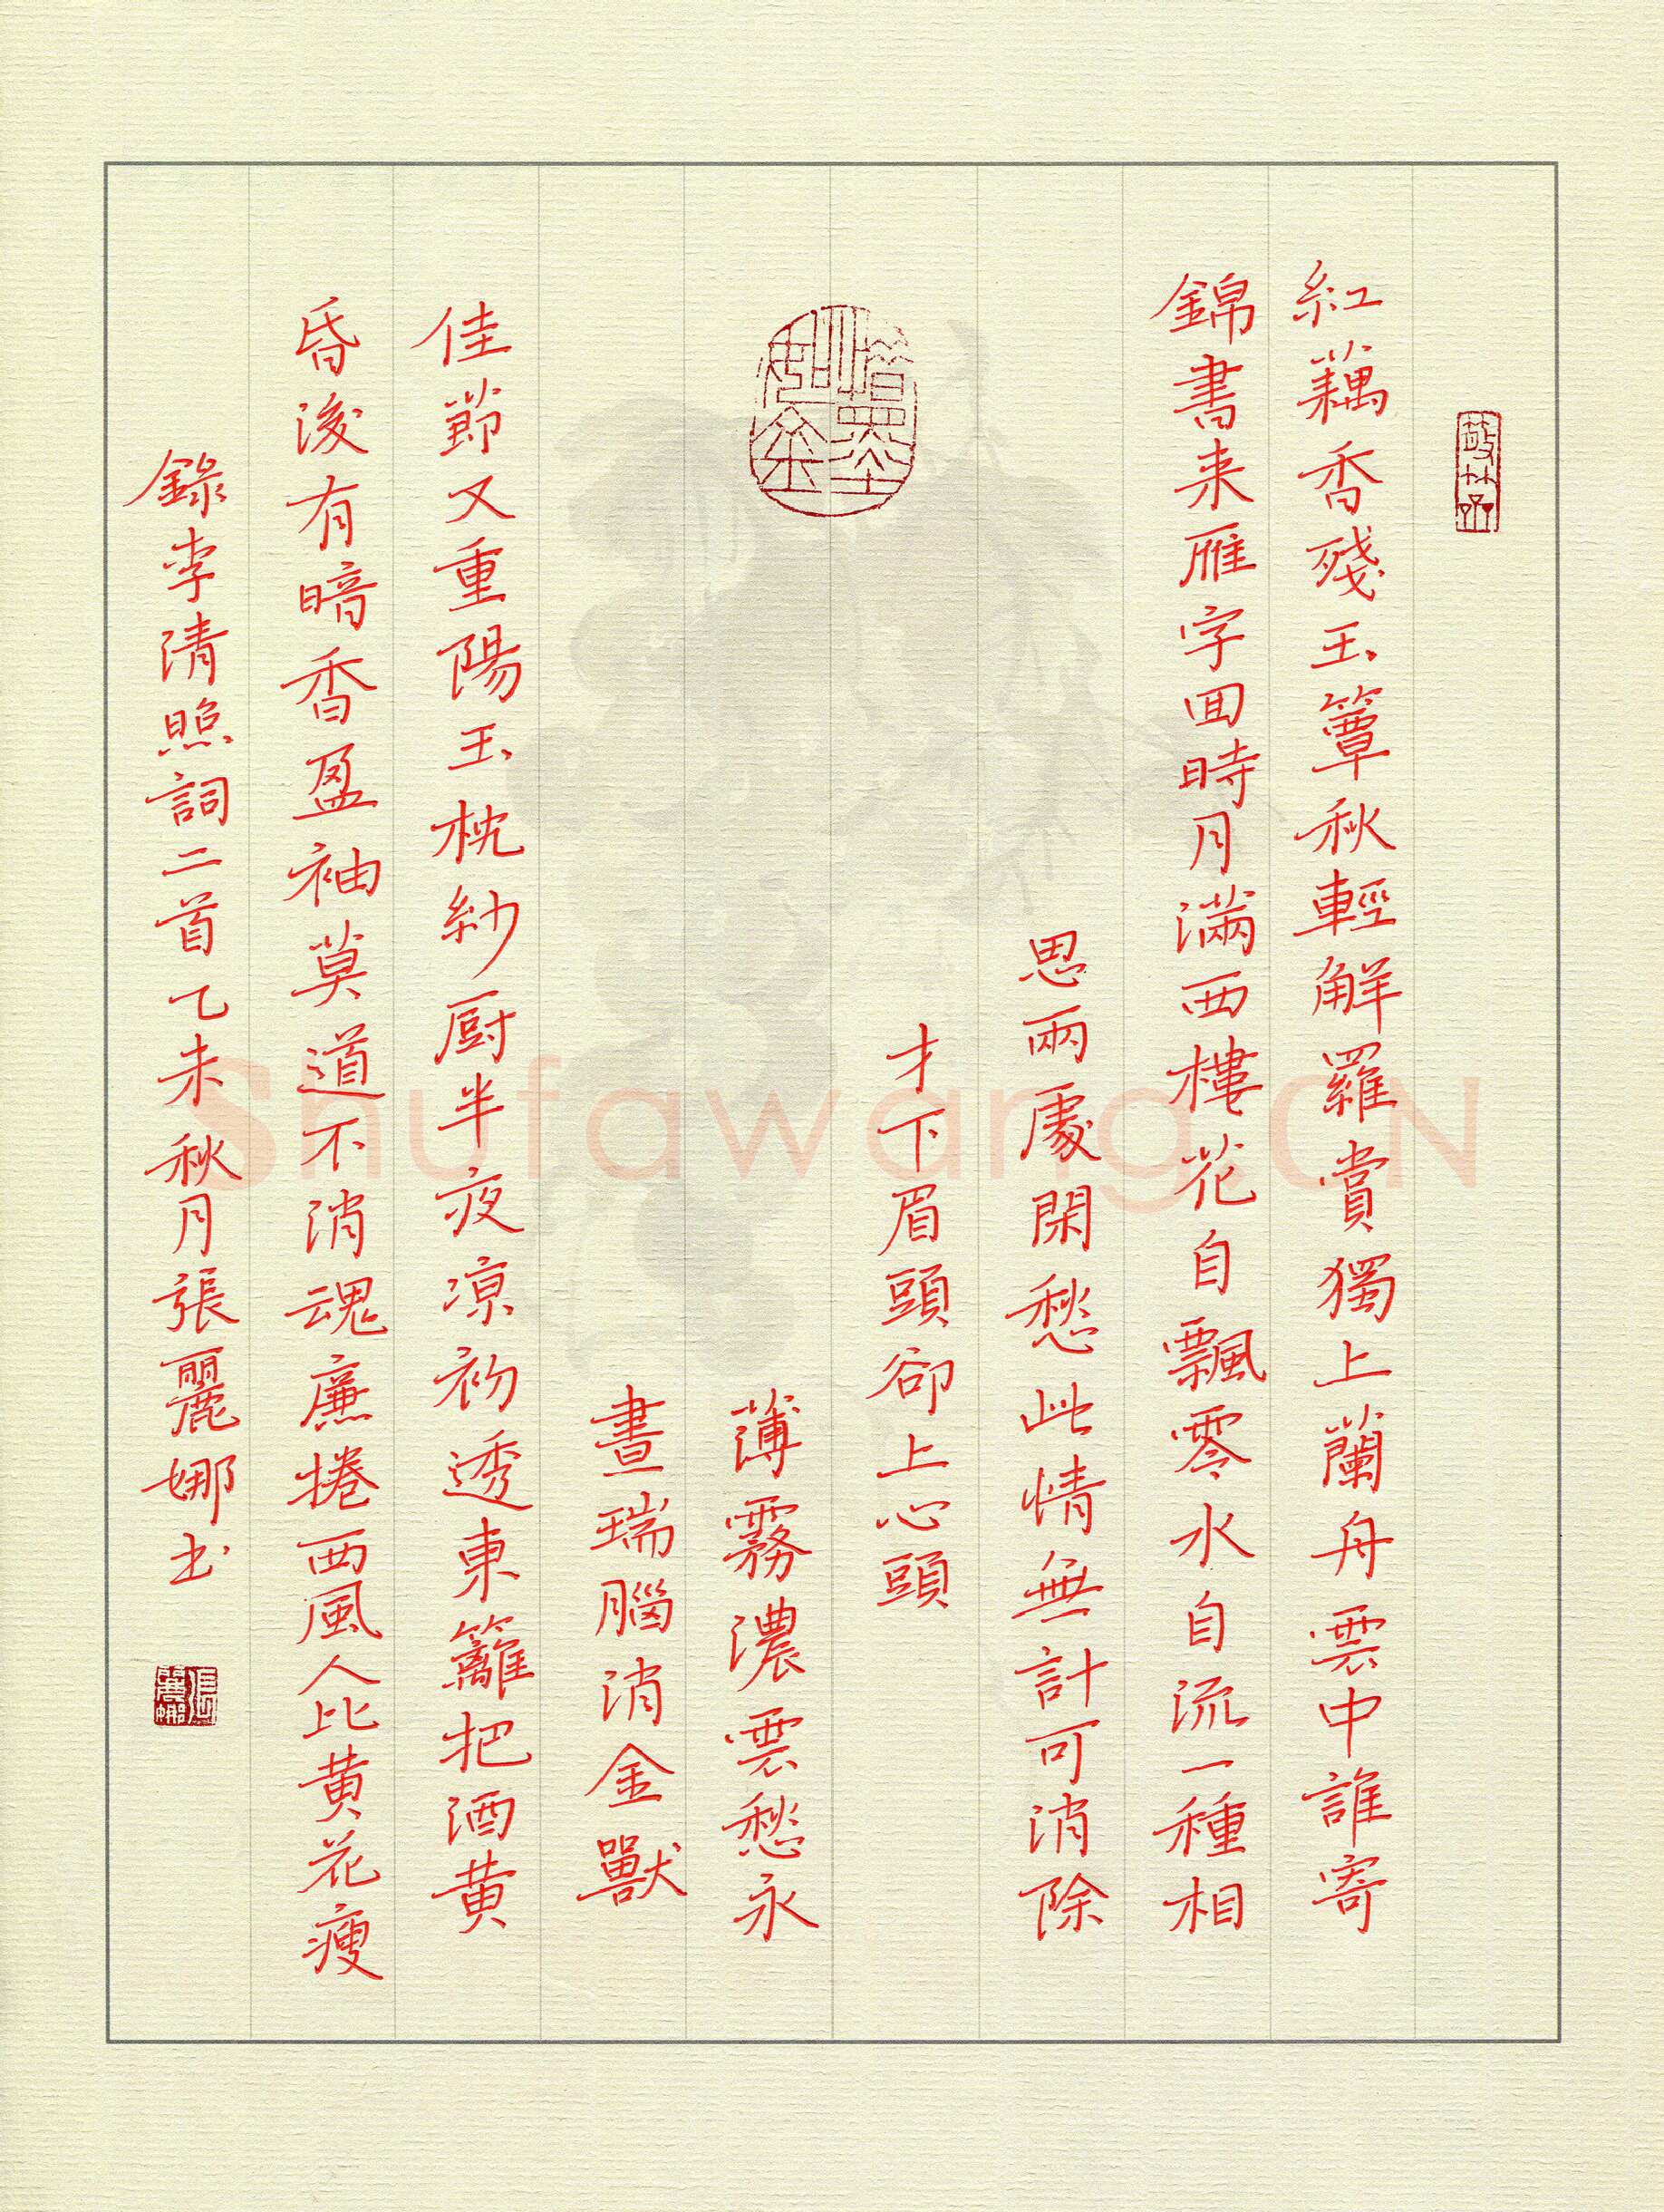 紅藕香殘玉簟秋輕解羅賞獨上蘭舟雲中誰寄
錦書来雁字回時月滿西樓花自飄零水自流一種相
思兩處閑愁此情無計可消除
才下眉頭卻上心頭
薄霧濃雲愁永
晝瑞腦消金獸
佳節又重陽玉枕紗厨半夜涼初透東籬把酒黄
昏後有暗香盈袖莫道不消魂廉捲西風人比黄花瘦
錄李清照詞二首乙未秋月張麗娜书
惜墨如金
張麗娜
Shufawang.CN